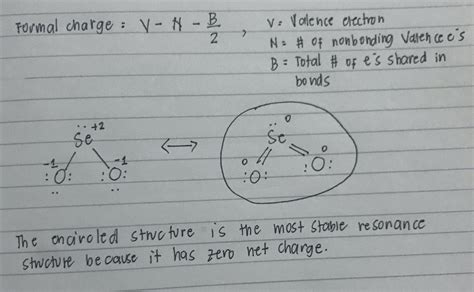 Formal charge : V - N - B/2 , V = Valence electron
N = # of nonbonding Valence e's
B = Total # of e's shared in
bonds
+2 0
Se ⟷ Se
-1 -1 0 0
:O: :O: :O: :O:
The encircled structure is the most stable resonance
structure because it has zero net charge.